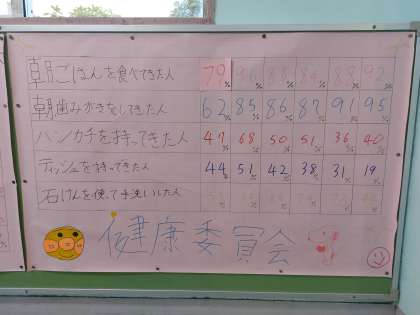 朝ごはんを食べてきた人 79%
朝歯みがきをしてきた人 62% 85% 86% 87% 91% 95%
ハンカチを持ってきた人 47% 68% 50% 51% 36% 40%
ティッシュを持ってきた人 44% 51% 42% 38% 31% 19%
石けんを使って手洗いした人
健康委員会